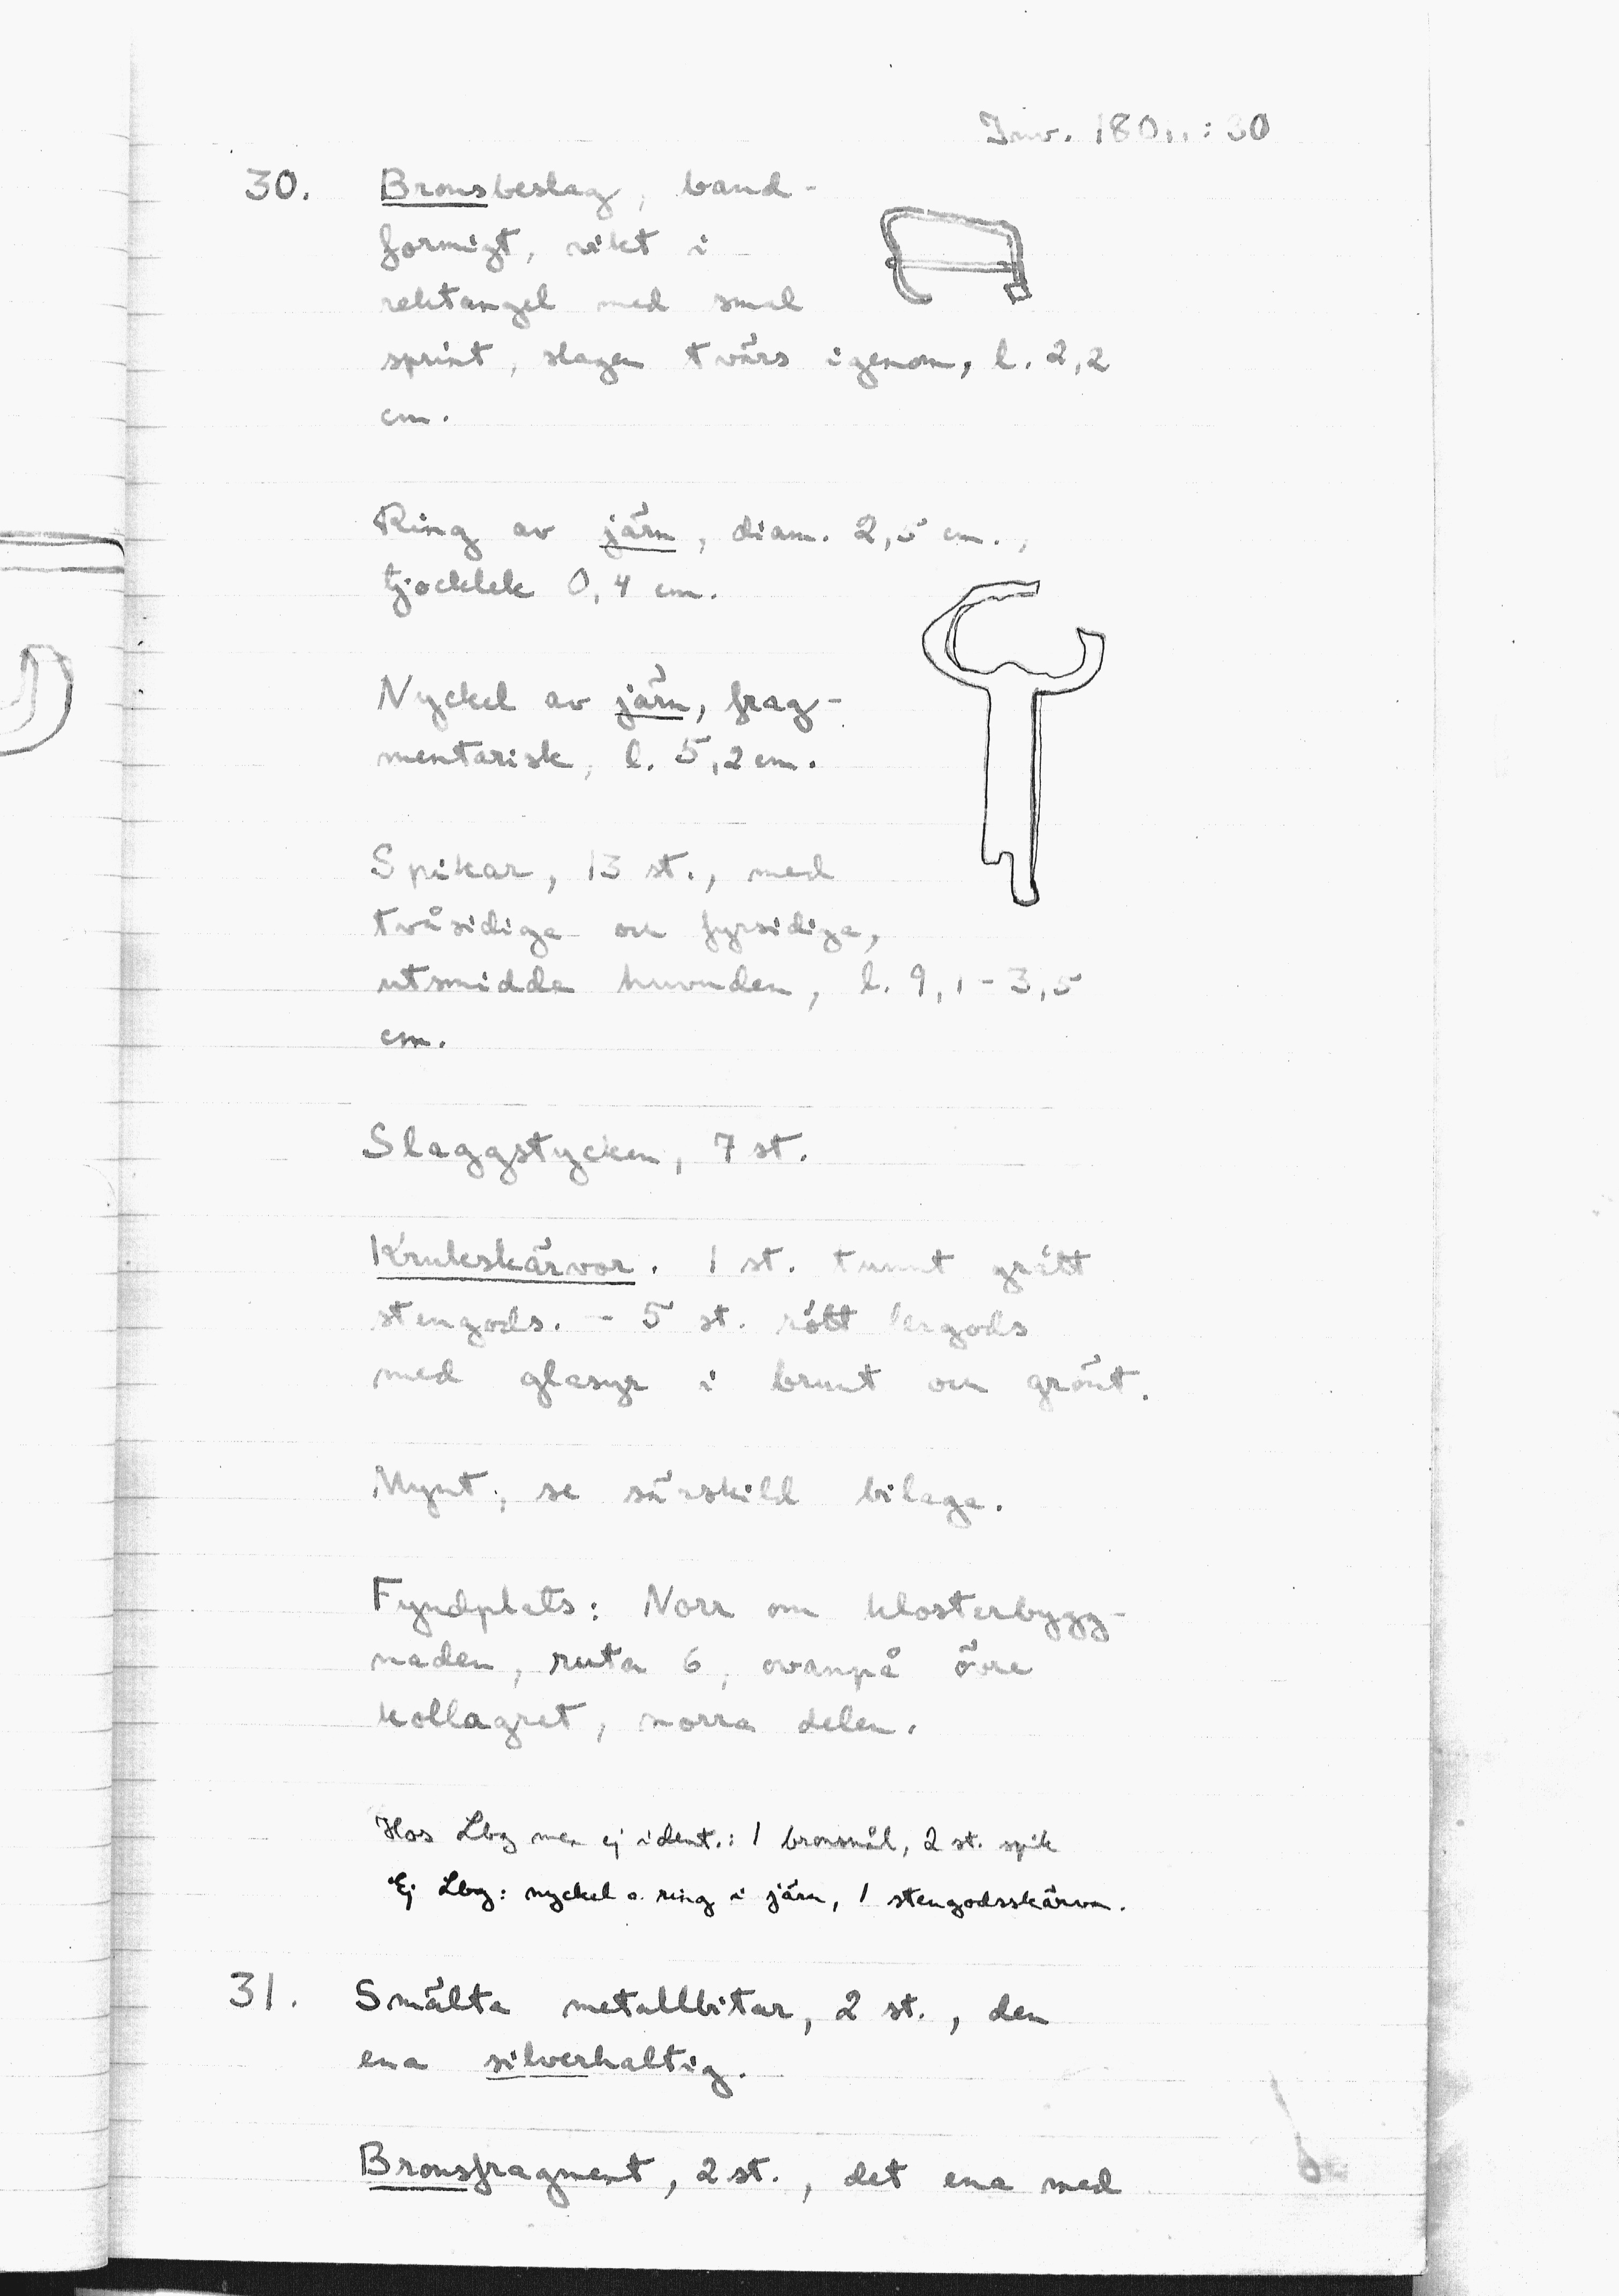 Inv. 180..:30
30. Bronsbeslag, band-
formigt, vikt i
rektangel med smal
sprint, slagen tvärs igenom, l. 2,2
cm.
Ring av järn, diam. 2,5 cm.,
tjocklek 0,4 cm.
Nyckel av järn, frag-
mentarisk, l. 5,2 cm.
Spikar, 13 st., med
tvåsidiga och fyrsidiga,
utsmidda huvuden, l. 9,1-3,5
cm.
Slaggstycken, 7 st.
Krukskärvor. 1 st. tunnt grått
stengods. - 5 st. rött lergods
med glasyr i brunt och grönt.
Mynt, se särskild bilaga.
Fyndplats: Norr om klosterbygg-
naden, ruta 6, ovanpå övre
kollagret, norra delen.
Hos Lbg men ej ident.: 1 bronsnål, 2 st. spik
Ej Lbg: nyckel o. ring i järn, 1 stengodsskärva.
31. Smälta metallbitar, 2 st., den
ena silverhaltig.
Bronsfragment, 2 st., det ena med